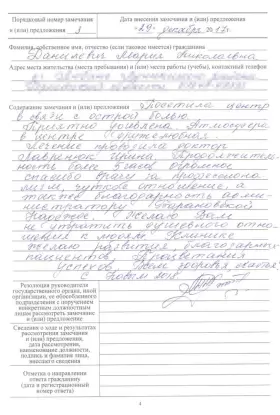 Порядковый номер замечания
и (или) предложения 3
Дата внесения замечания и (или) предложения
«29» декабря 2017 г.
Фамилия, собственное имя, отчество (если таковое имеется) гражданина
Данилевич Мария Николаевна
Адрес места жительства (места пребывания) и (или) места работы (учебы), контактный телефон
Содержание замечания и (или) предложения Посетила центр
в связи с острой болью.
Приятно удивлена. Атмосфера
в центре
Лечение проводила доктор
Гаврилюк Ирина. Продолжитель-
ность более 5 часов. Огромное
спасибо врачу за профессиона-
лизм, чуткое отношение, а
также благодарность адми-
нистратору Барановской
Надежде. Желаю Вам
не утратить душевного отно-
шения к людям. Клинике
желаю развития, благодарных
пациентов, процветания
успехов. Всем здоровья, счастья
С Новым годом
Резолюция руководителя
государственного органа, иной
организации, ее обособленного
подразделения с поручением
конкретным должностным
лицам рассмотреть замечание
и (или) предложение
Сведения о ходе и результатах
рассмотрения замечания
и (или) предложения,
дата рассмотрения,
наименование должности,
подпись и фамилия лица,
внесшего сведения
Отметка о направлении
ответа гражданину
(дата и регистрационный
номер ответа)
4